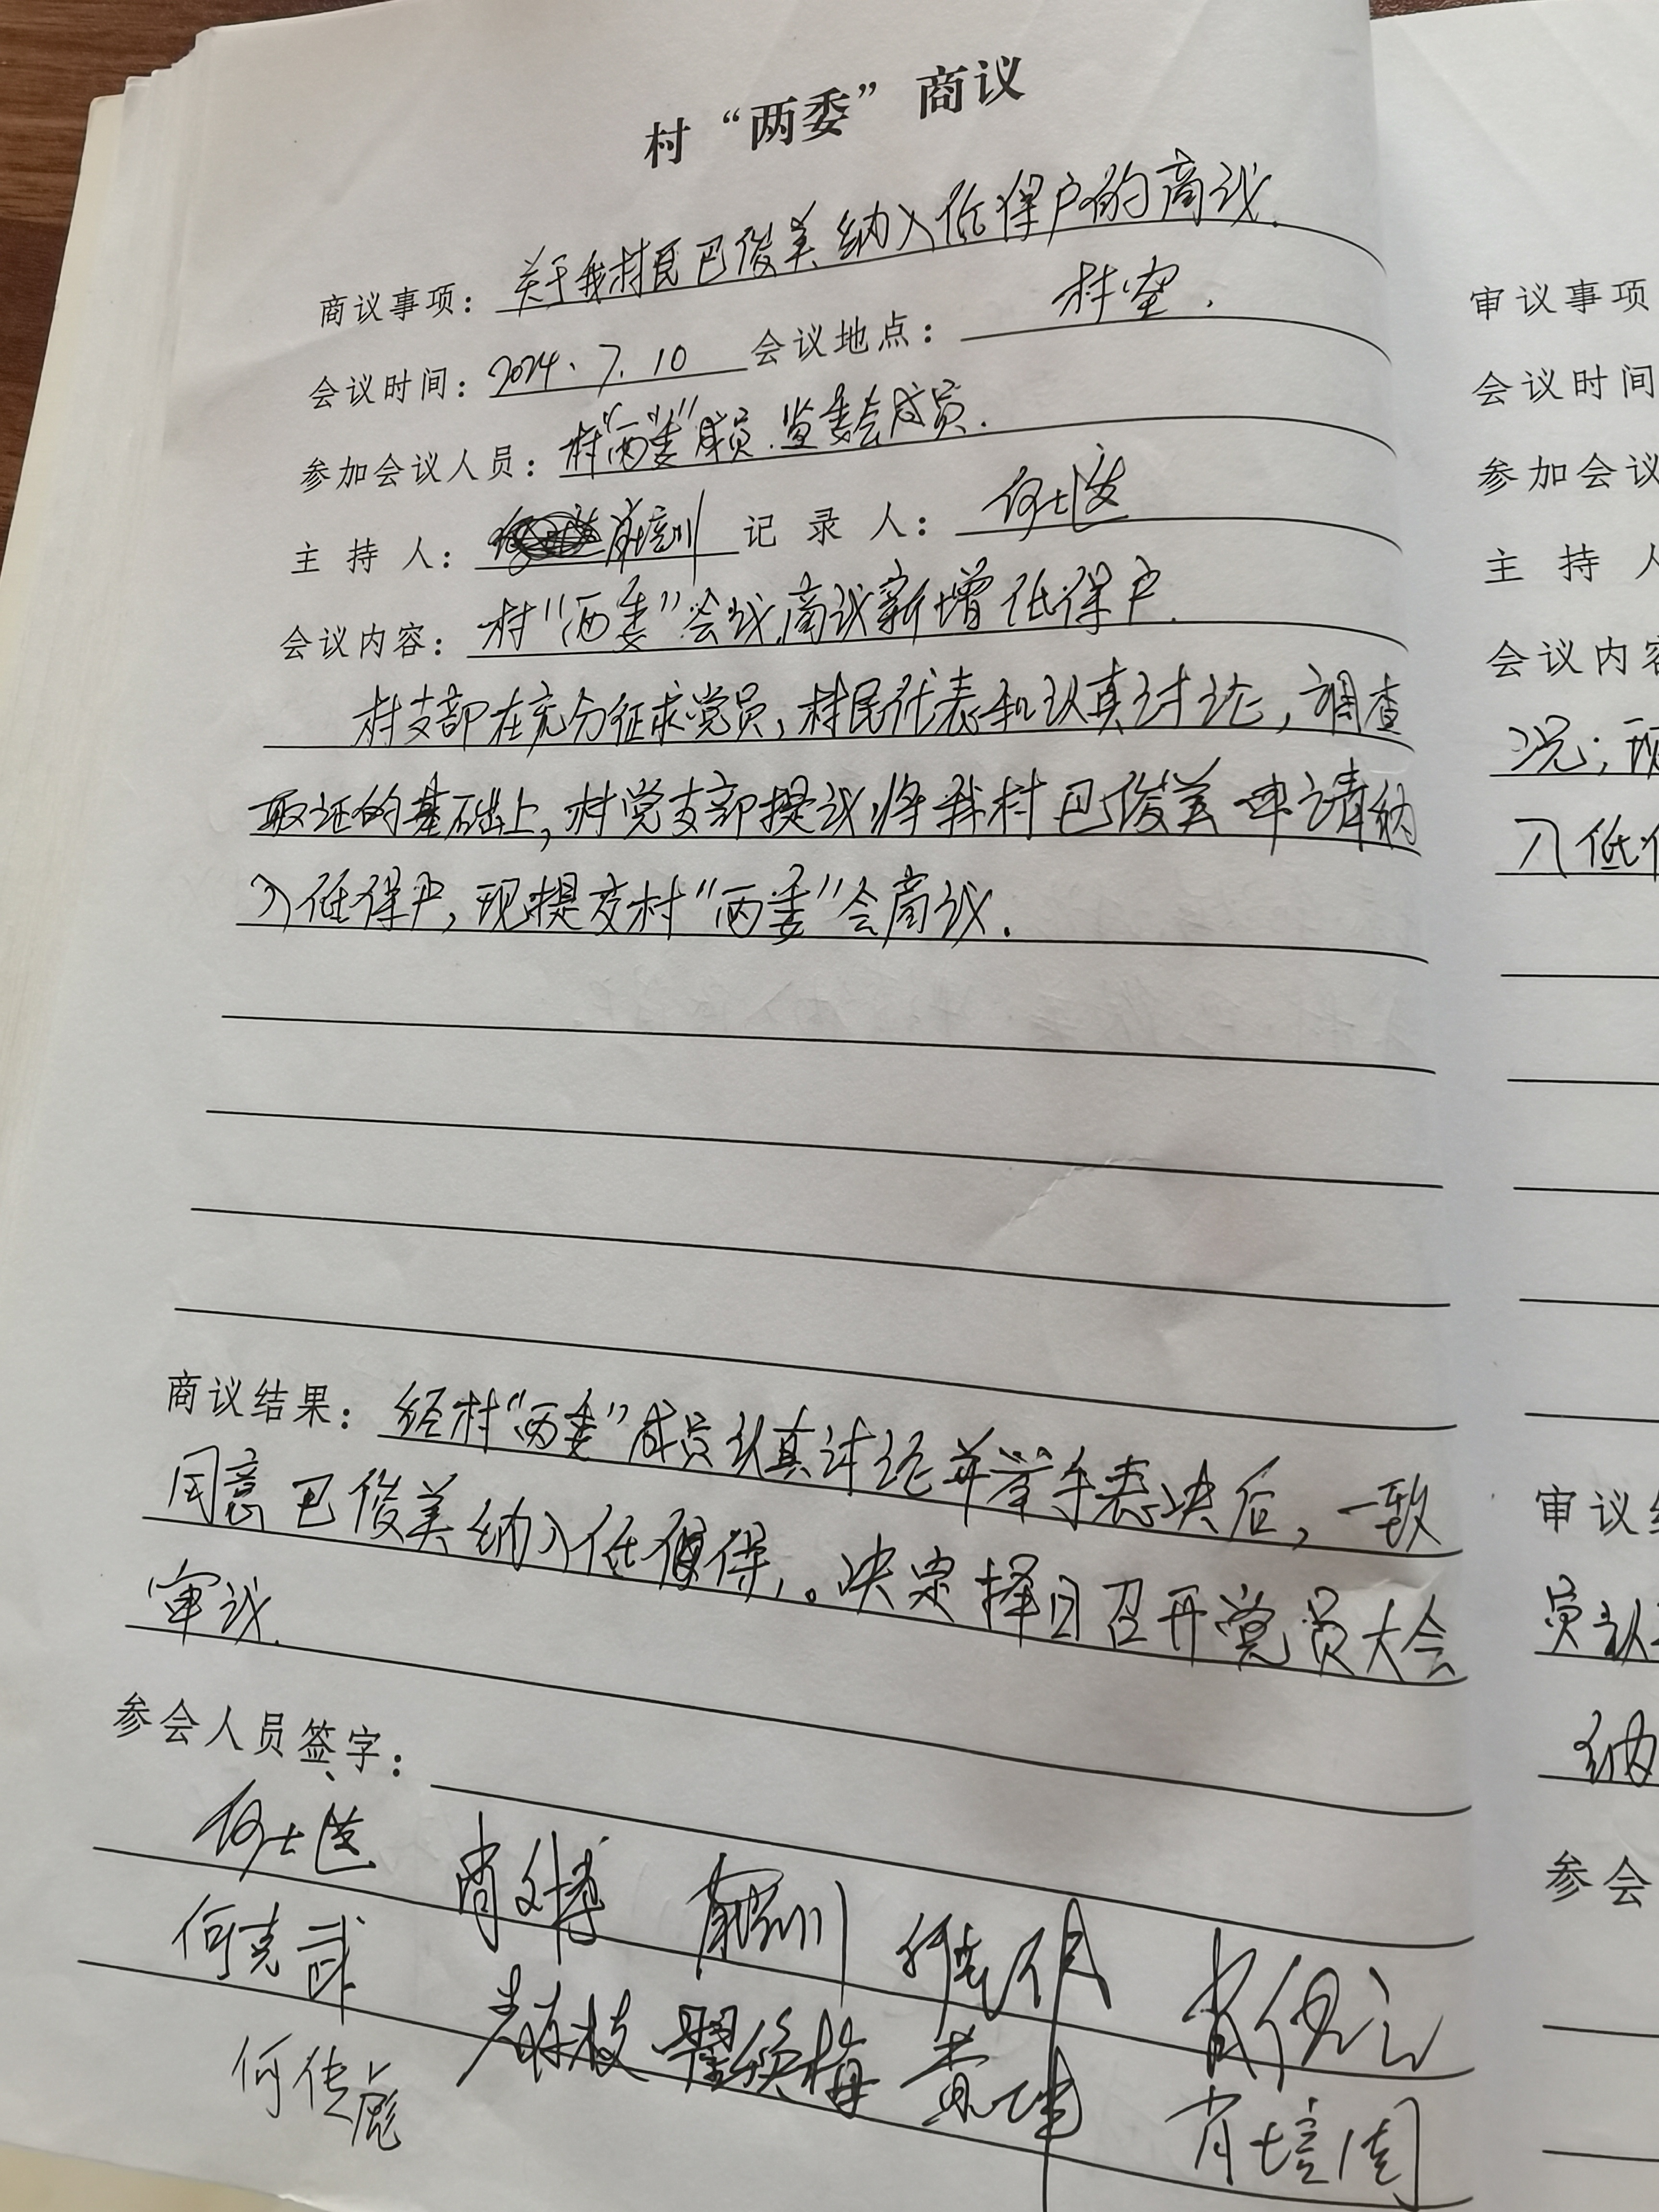 村“两委”商议
商议事项：关于我村民巴俊美纳入低保户的商议.
会议时间：2024.7.10 会议地点：村室.
参加会议人员：村“两委”成员.监委会成员.
主 持 人：肖培训 记 录 人：何士选
会议内容：村“两委”会议,商议新增低保户.
村支部在充分征求党员,村民代表和认真讨论,调查
取证的基础上,村党支部提议将我村巴俊美申请纳
入低保户,现提交村“两委”会商议.
商议结果：经村“两委”成员认真讨论并举手表决后,一致
同意巴俊美纳入低保,。决定择日召开党员大会
审议.
参会人员签字：
何士选 肖文博
何克武 翟焕梅 肖培周
何传彪
审议事项
会议时间
参加会议
主 持 人
会议内容
况;现
入低保
审议结
员认真
纳
参会